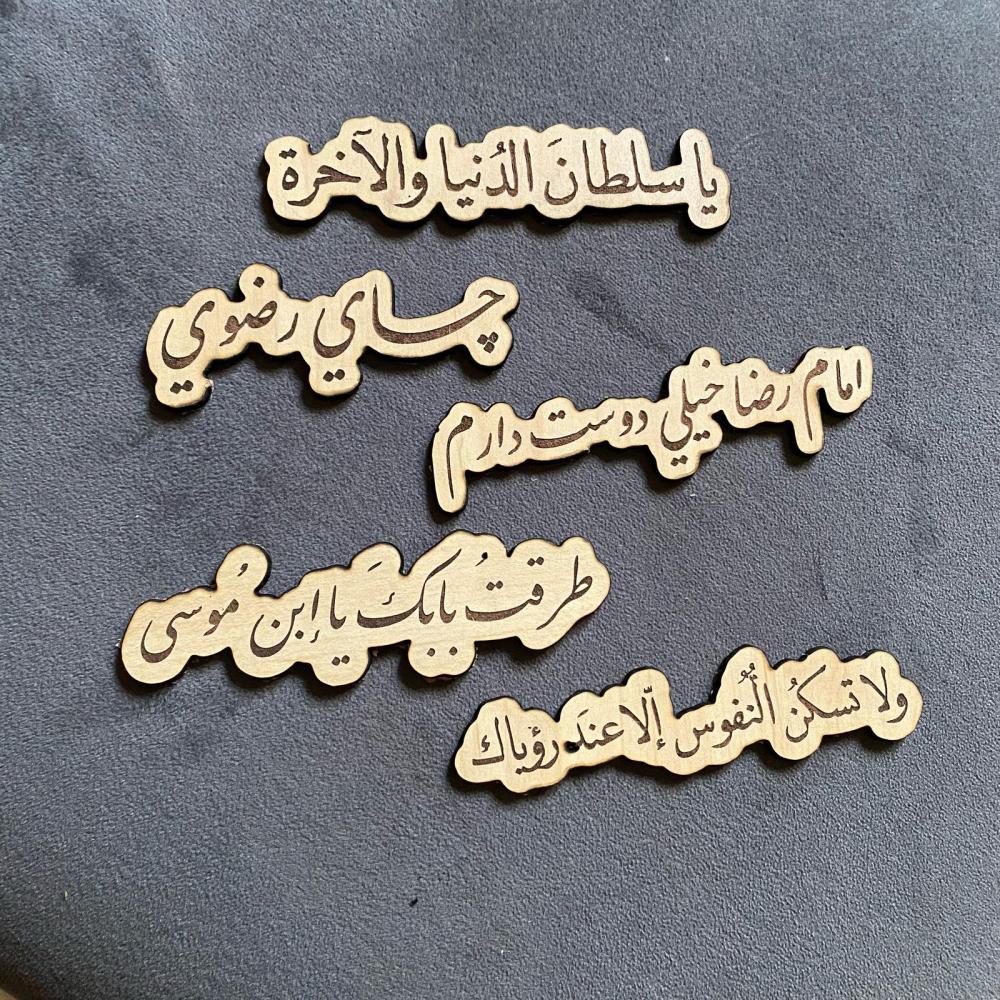 يا سلطانَ الدُنيا والآخرة
چاي رضوي
امام رضا خيلي دوست دارم
طرقتُ بابكَ يا إبن مُوسى
ولا تسكنُ النُّفوس إلّا عندَ رؤياك